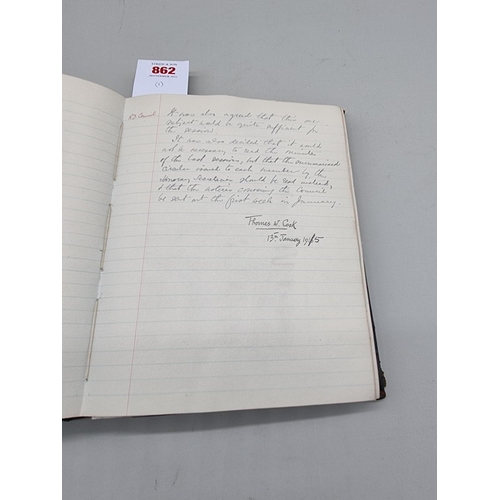 862
(1)
It was also agreed that this one
subject would be quite sufficient for
the session.
It was also decided that it would
not be necessary to read the minutes
of the last session, but that the summarised
circular issued to each member by the
Honorary Secretary should be read instead,
& that the notices convening the Council
be sent out the first week in January.
Thomas W. Cook
13th January 1915